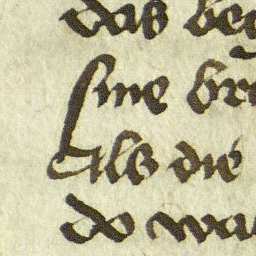 das be
sine br
Als die
do wa